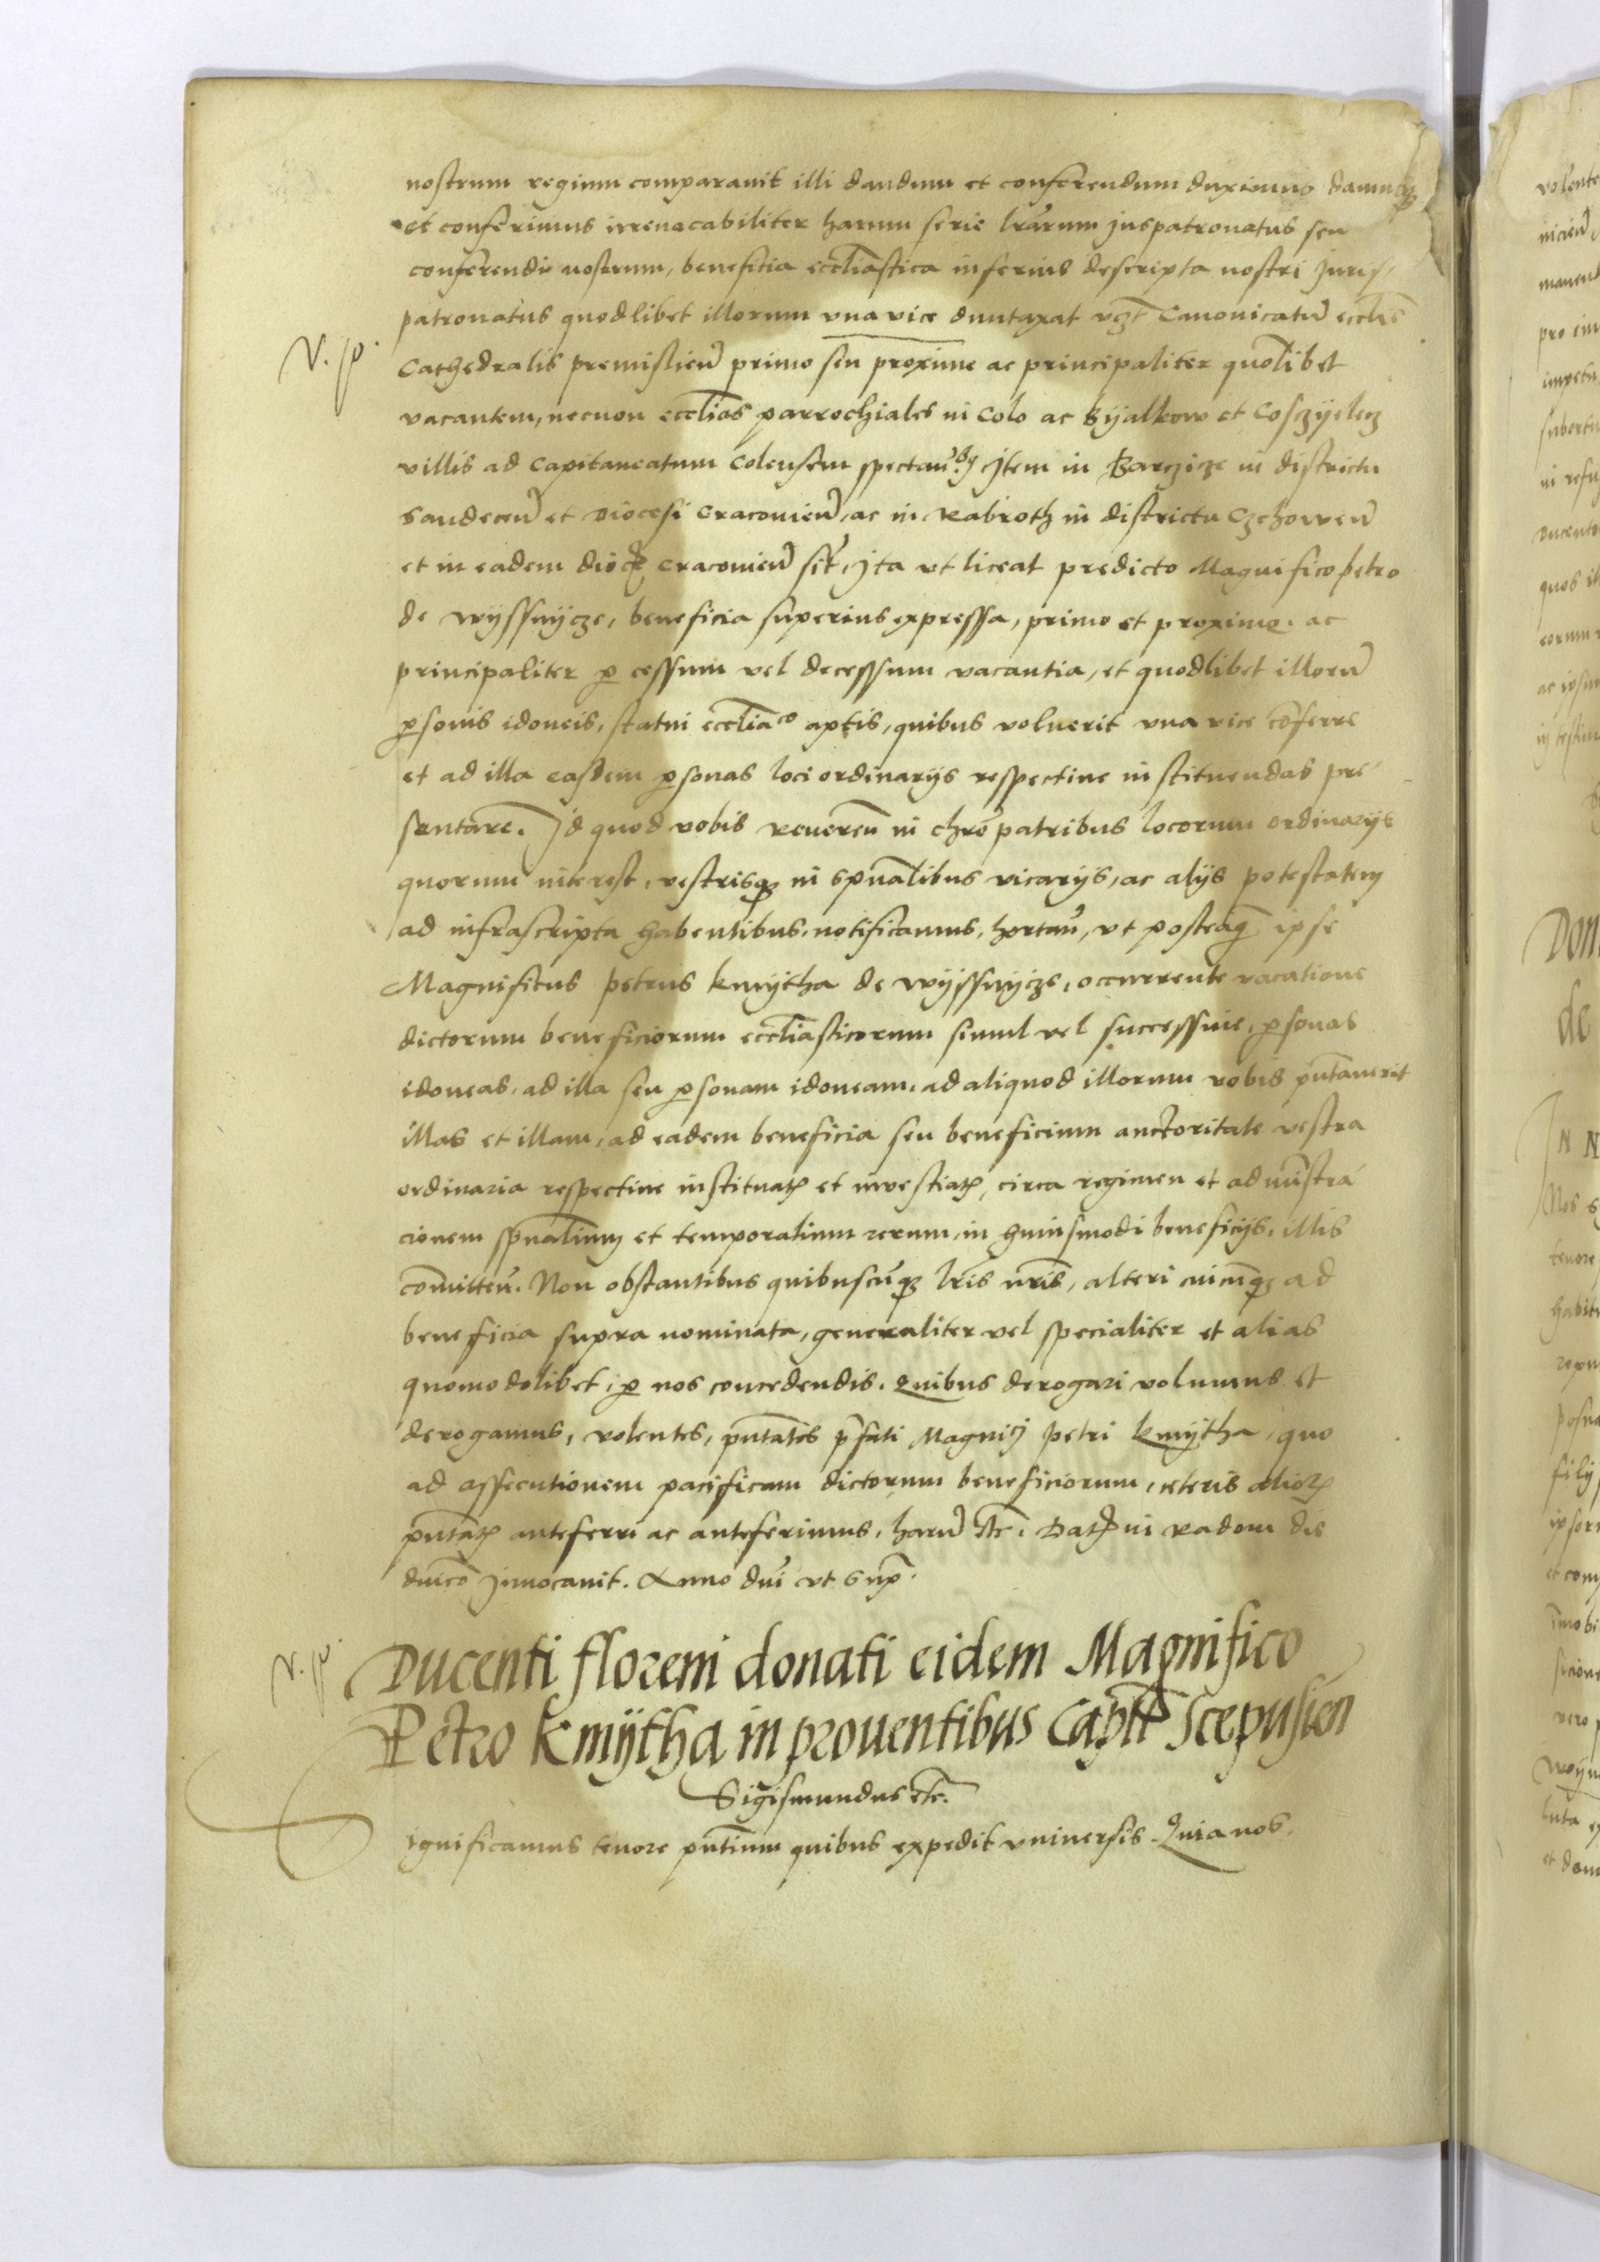 nostrum regium comparauit illi dandum et conferendum duximus damusq3
et conferimus irreuocabiliter harum serie lrarum juspatronatus seu
conferendi nostrum, beneficia eccliastica inferius descripta nostri juris,
patronatus quodlibet illorum vna vice duntaxat vz Canonicatũ ecclie
V. sp.
Cathedralis premislieñ primo seu proxime ac principaliter quolibet
vacantem, necnon ecclias parrochiales in Colo ac Byalkow et Cosczyelecz
villis ad Capitaneatum Colensem spectan. Item in Barczicze in districtu
Sandeceñ et Diocesi Cracouieñ, ac in Rabroth in districtu Czchoweñ
et in eadem dioc Cracouieñ sit, Ita vt liceat predicto Magnifico petro
de wyssnycze, beneficia superius expressa, primo et proxime ac
principaliter p cessum vel decessum vacantia, et quodlibet illorũ
psonis idoneis, statui ecclia^co aptis, quibus voluerit vna vice cõferre
et ad illa easdem psonas loci ordinarijs respectiue instituendas pre
sentare. Id quod vobis Reuereñ in chro patribus locorum ordinarijs
quorum interest, vestrisq3 in spũalibus vicarijs, ac alijs potestatem
ad infrascripta habentibus, notificamus, hortañ, vt posteaq̃ ipse
Magnificus petrus kmytha de wyssnycze, occurrente vacatione
dictorum beneficiorum eccliasticorum simul vel successiue, psonas
idoneas, ad illa seu psonam idoneam, ad aliquod illorum vobis pñtauerit
illas et illam, ad eadem beneficia seu beneficium auctoritate vestra
ordinaria respectiue instituatis et inuestiatis, circa regimen et administra
cionem spũalium et temporalium rerum, in huiusmodi beneficijs, illis
cõmitteñ. Non obstantibus quibuscũq3 lris nris, alteri cuicũq3 ad
beneficia supra nominata, generaliter vel specialiter et alias
quomodolibet, p nos concedendis. Quibus derogari volumus et
derogamus, volentes, pñtatos pfati Magnici Petri kmytha, quo
ad assecutionem pacificam dictorum beneficiorum, ceteris alioꝝ
pñtatis anteferri ac anteferimus, harũ etc. Dat in Radom die
dnico Inuocauit. Anno dñi vt sup.
V. sp.
Ducenti floreni donati eidem Magnifico
Petro Kmÿtha in prouentibus Captt Scepusien
Sigismundus etc.
Significamus tenore pñtium quibus expedit vniuersis. Quia nos